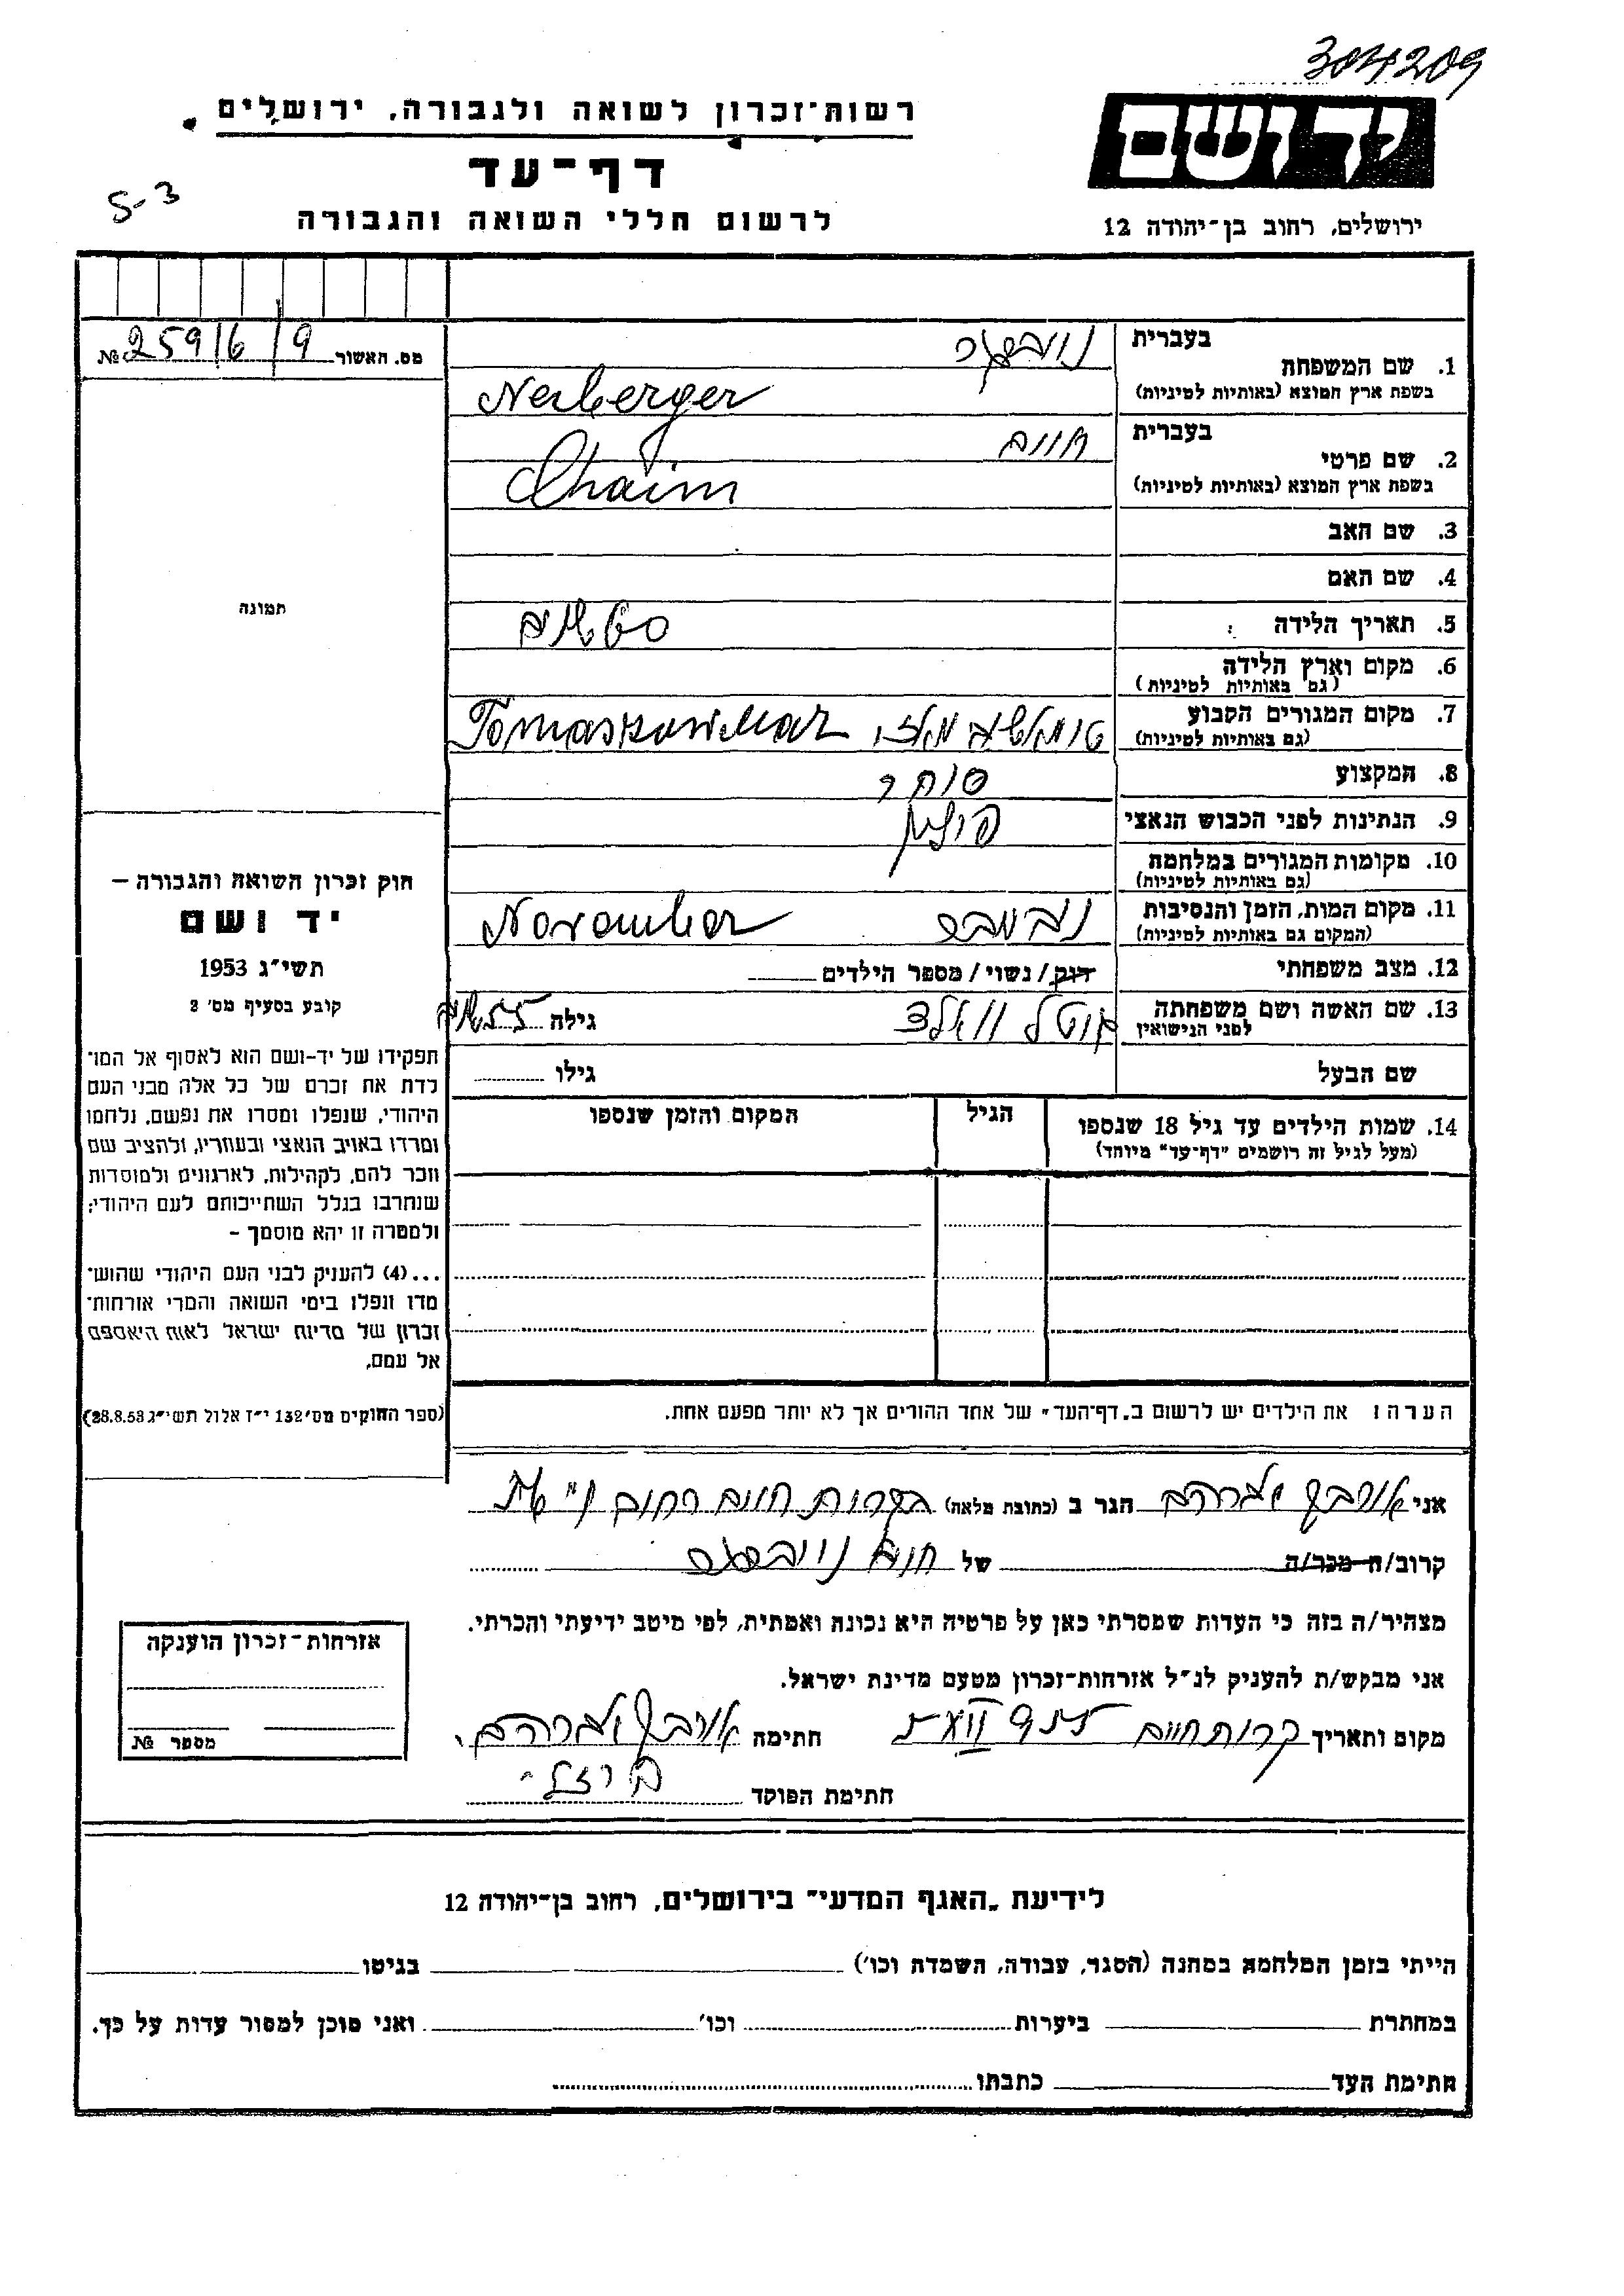 304209
יד ושם
רשות־זכרון לשואה ולגבורה, ירושלים
דף־עד
S-3
לרשום חללי השואה והגבורה
ירושלים, רחוב בן־יהודה 12
מס. האשור 259/6/9 №
בעברית
1. שם המשפחה
בשפת ארץ המוצא (באותיות לטיניות) Neuberger
בעברית חיים
2. שם פרטי
בשפת ארץ המוצא (באותיות לטיניות) Chaim
3. שם האב
4. שם האם
תמונה
5. תאריך הלידה :
6. מקום וארץ הלידה
(גם באותיות לטיניות)
7. מקום המגורים הקבוע
(גם באותיות לטיניות)
8. המקצוע סוחר
9. הנתינות לפני הכבוש הנאצי פולין
10. מקומות המגורים במלחמה
(גם באותיות לטיניות)
11. מקום המות, הזמן והנסיבות November
(המקום גם באותיות לטיניות)
12. מצב משפחתי רוק/נשוי/מספר הילדים
13. שם האשה ושם משפחתה גילה
לפני הנישואין
שם הבעל גילו
14. שמות הילדים עד גיל 18 שנספו הגיל המקום והזמן שנספו
(מעל לגיל זה רושמים "דף־עד" מיוחד)
חוק זכרון השואה והגבורה –
יד ושם
תשי״ג 1953
קובע בסעיף מס׳ 2
תפקידו של יד-ושם הוא לאסוף אל המו־
לדת את זכרם של כל אלה מבני העם
היהודי, שנפלו ומסרו את נפשם, נלחמו
ומרדו באויב הנאצי ובעוזריו, ולהציב שם
וזכר להם, לקהילות, לארגונים ולמוסדות
שנחרבו בגלל השתייכותם לעם היהודי;
ולמטרה זו יהא מוסמך –
...(4) להעניק לבני העם היהודי שהוש־
מדו ונפלו בימי השואה והמרי אזרחות־
זכרון של מדינת ישראל לאות היאספם
אל עמם.
(ספר החוקים מס׳ 132 י״ז אלול תשי״ג 28.8.53)
הערה: את הילדים יש לרשום ב„דף־העד" של אחד ההורים אך לא יותר מפעם אחת.
אני אורבך אברהם הגר ב (כתובת מלאה) בקרית חיים רחוב
קרוב/ה מכר/ה של חיים
מצהיר/ה בזה כי העדות שמסרתי כאן על פרטיה היא נכונה ואמתית, לפי מיטב ידיעתי והכרתי.
אני מבקש/ת להעניק לנ״ל אזרחות־זכרון מטעם מדינת ישראל.
מקום ותאריך קרית חיים חתימה אורבך אברהם
חתימת הפוקד
אזרחות־זכרון הוענקה
מספר №
לידיעת „האגף המדעי" בירושלים, רחוב בן־יהודה 12
הייתי בזמן המלחמה במחנה (הסגר, עבודה, השמדה וכו׳) בגיטו
במחתרת ביערות וכו׳ ואני מוכן למסור עדות על כך.
חתימת העד כתבתו